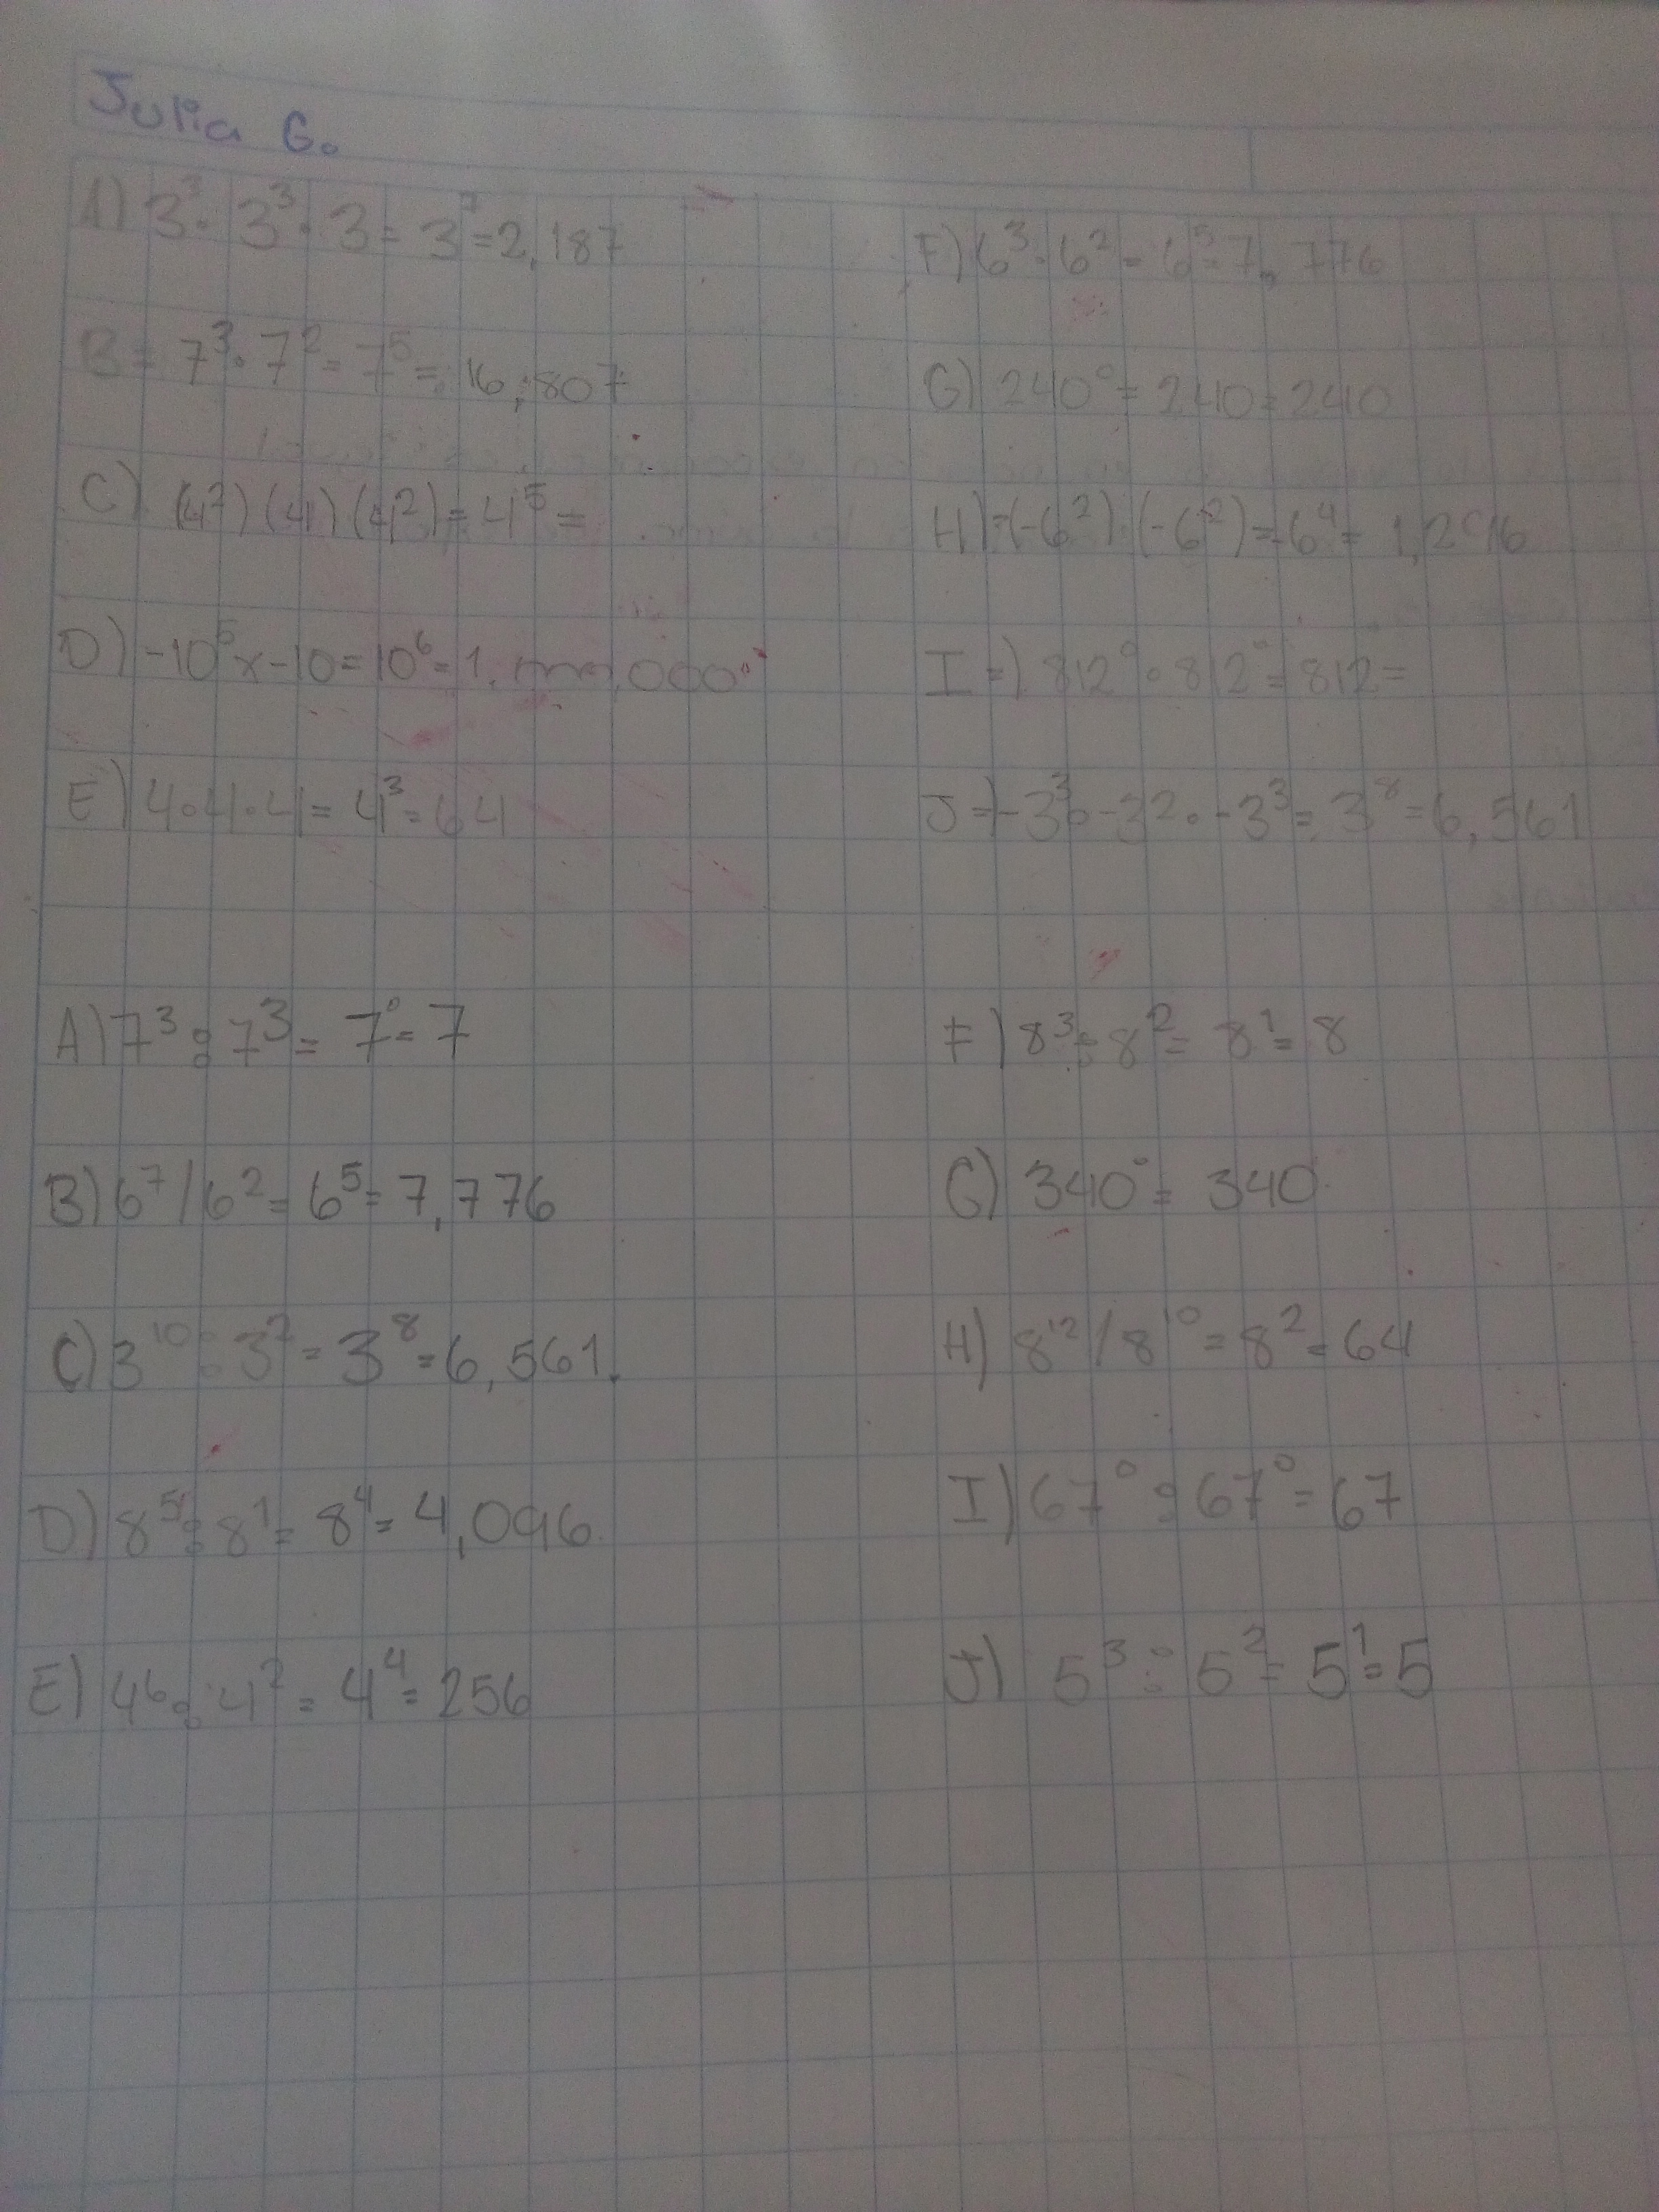 Julia G.
A) 3³ · 3³ · 3 = 3⁷ = 2,187
B = 7³ · 7² = 7⁵ = 16,807
C) (4²) (4) (4²) = 4⁵ =
D) -10⁵ x -10 = 10⁶ = 1, ,000
E) 4 · 4 · 4 = 4³ = 64
F) 6³ · 6² = 6⁵ = 7,776
G) 240⁰ = 240 = 240
H) = (-6²) · (-6²) = -6⁴ = 1,296
I =) 812⁰ · 812⁰ = 812 =
J =) -3³ · -32 · -3³ = 3⁸ = 6,561
A) 7³ ÷ 7³ = 7⁰ = 7
B) 6⁷ / 6² = 6⁵ = 7,776
C) 3¹⁰ ÷ 3² = 3⁸ = 6,561.
D) 8⁵ ÷ 8¹ = 8⁴ = 4,096
E) 4⁶ ÷ 4² = 4⁴ = 256
F) 8³ ÷ 8² = 8¹ = 8
G) 340⁰ = 340
H) 8¹² / 8¹⁰ = 8² = 64
I) 67⁰ ÷ 67⁰ = 67
J) 5³ ÷ 5² = 5¹ = 5